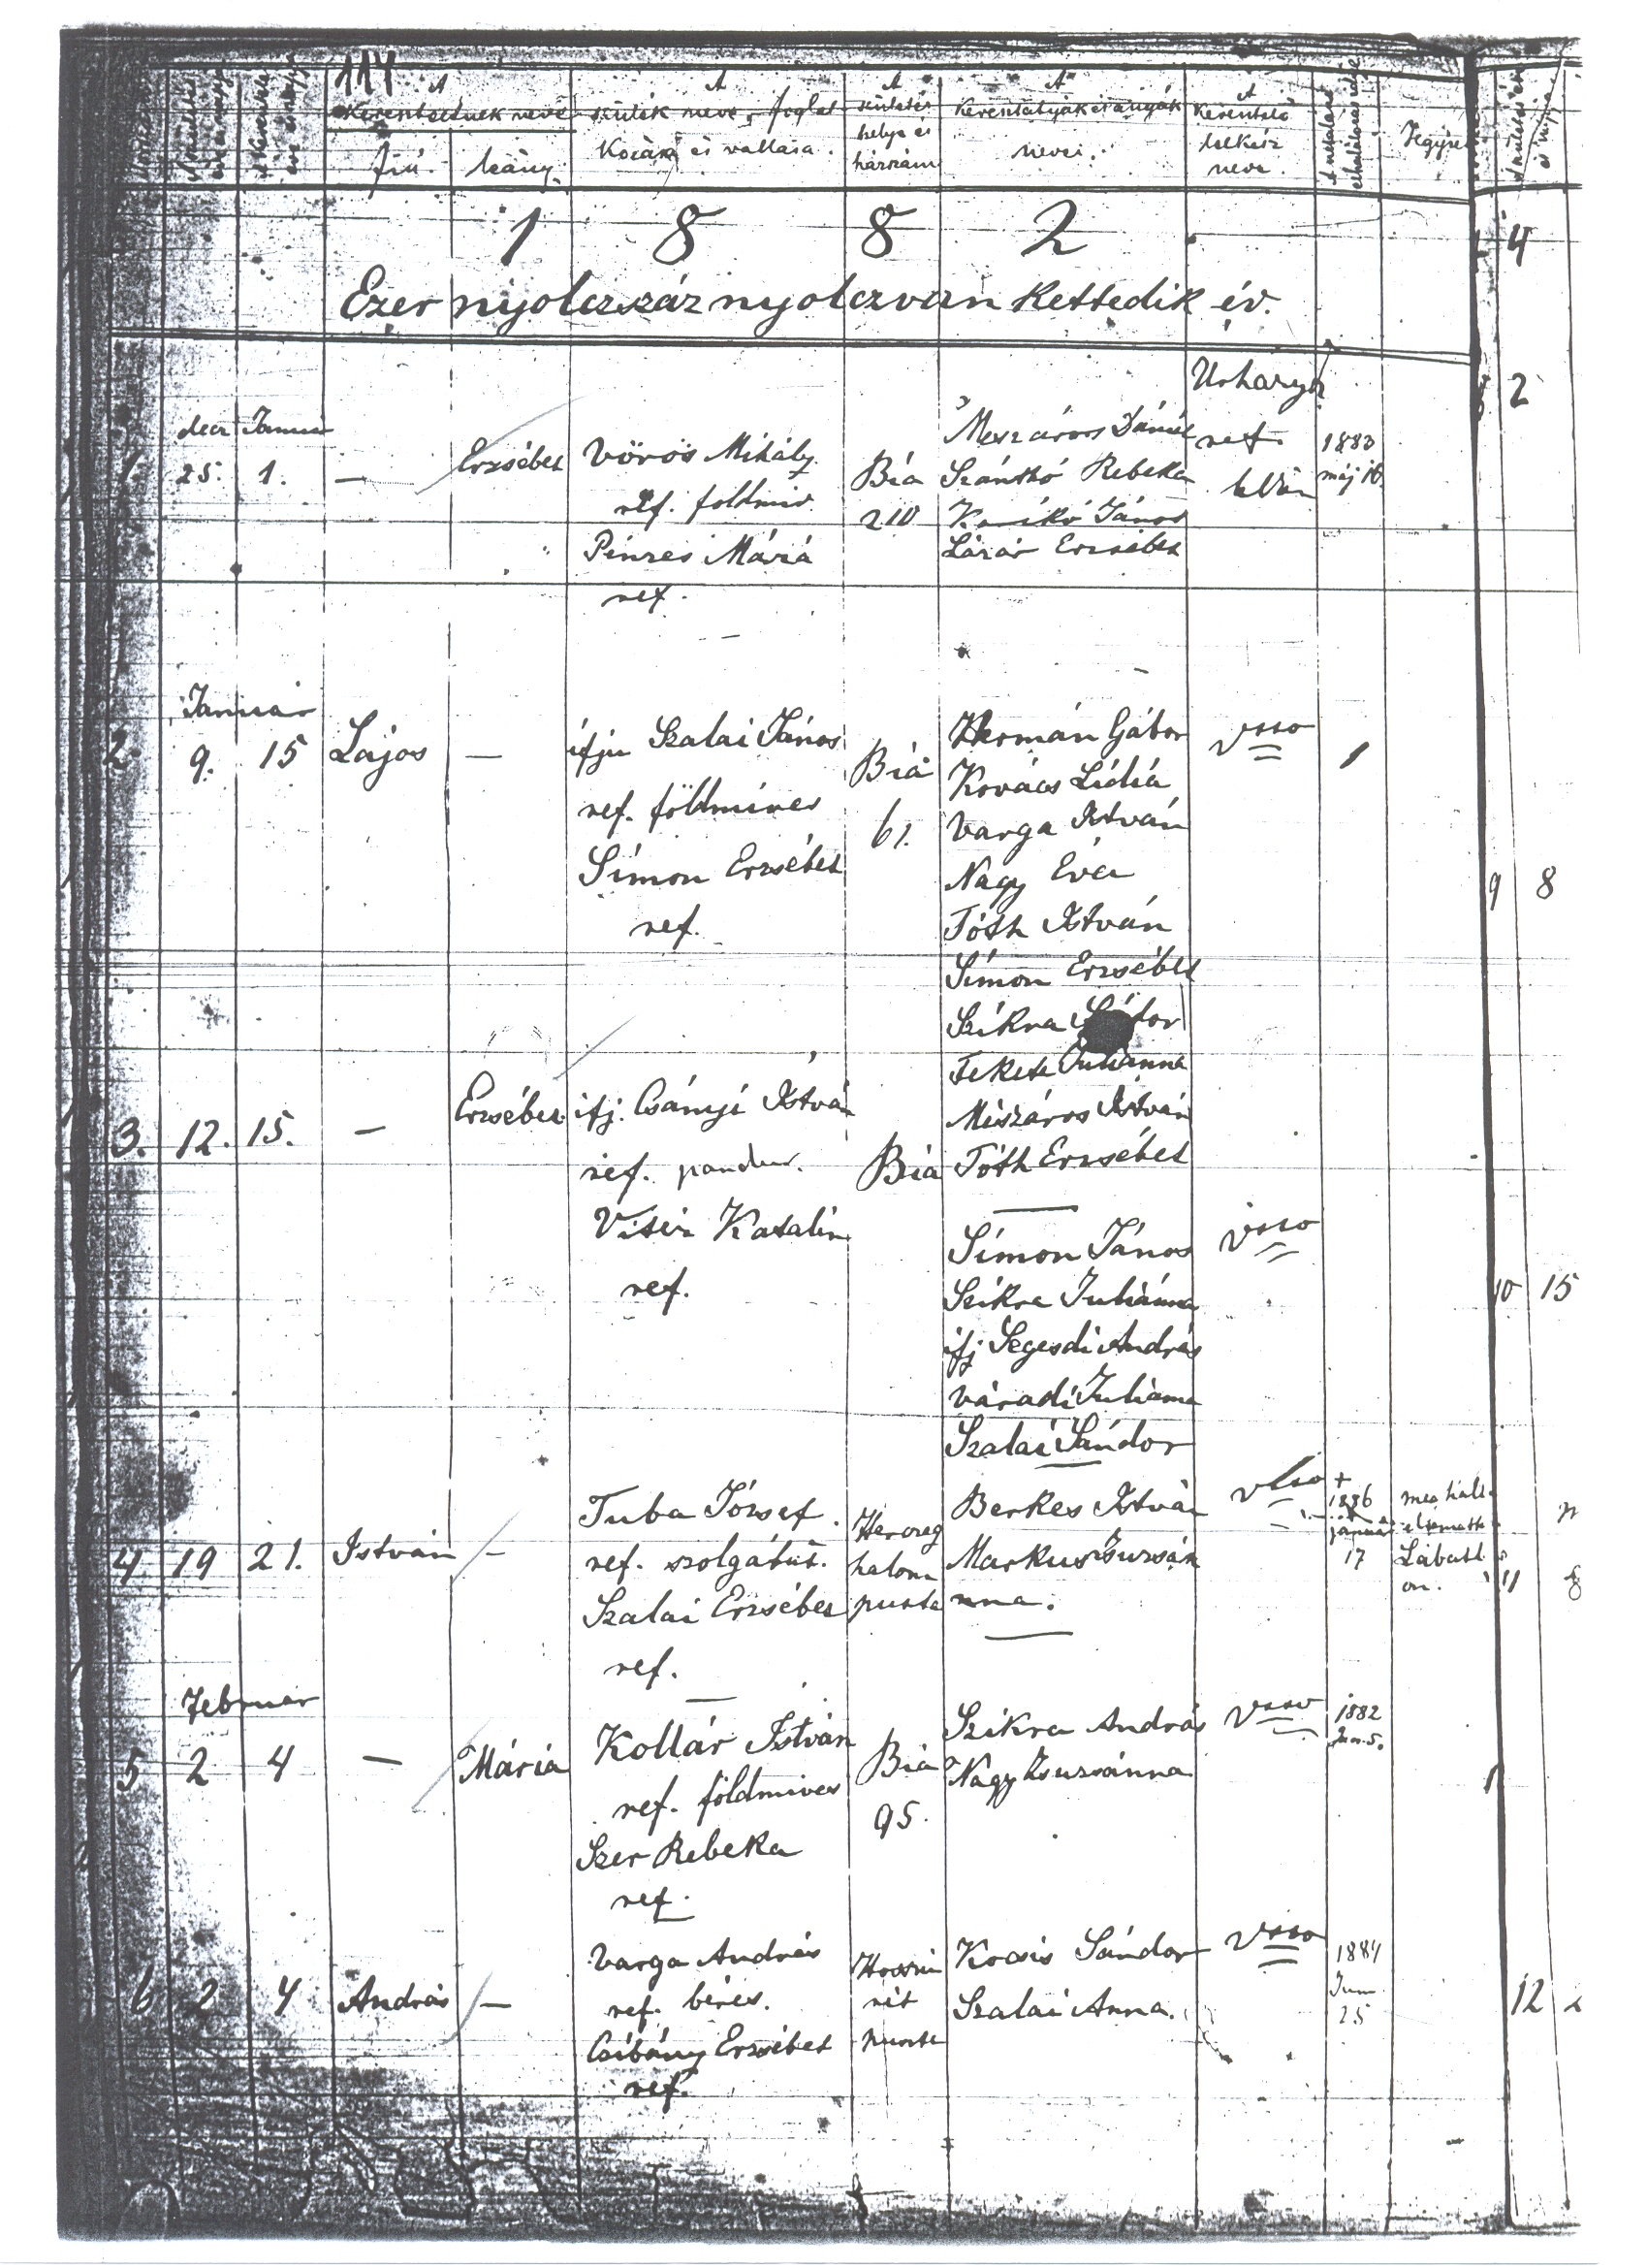 114
A
Kereszteltnek neve
fiú.
leány.
A
szülék neve, foglal-
kozása és vallása.
A
születés
helye és
házszám
A
keresztatyák és anyák
nevei.
A
keresztelő
lelkész
neve.
Jegyze
1 8 8 2
Ezer nyolczszáz nyolczvan kettedik év.
4
2
1. decz 25. Januá 1. — Erzsébet
Vörös Mihály
ref. földmiv
Pénzes Mária
ref.
Bia
210
Meszáros Dániel
Szántó Rebeka
János
Lázár Erzsébet
ref.
1883
máj 16.
Január
2. 9. 15 Lajos —
ifju Szalai János
ref. földmíves
Símon Erzsébet
ref.
Bia
61.
Hermán Gábor
Kovács Lídia
Varga István
Nagy Éva
Tóth István
Símon Erzsébet
Szikra
Fekete Julianna
Mészáros István
Tóth Erzsébet
vsso
9 8
3. 12. 15. — Erzsébet
ifj. Csányi István
ref. pandur.
Katalin
ref.
Bia
Símon János
Szikra Juliánna
ifj Segesdi András
Váradi Julianna
Szalai Sándor
vsso
10 15
4 19 21. István —
Tuba József.
ref. szolgá
Szalai Erzsébet
ref.
Herczeg
halom
puszta
Berkes István
Markus Zsuzsán
nna.
+
1886
január
17
meghalt
Lábatl
on.
11 8
Februar
5 2 4 — Mária
Kollár István
ref. földmives
Szer Rebeka
ref.
Bia
95.
Szikra András
Nagy Zsuzsánna
vsso
1882
Jun. 5.
6 2 4 András —
Varga András
ref. béres.
Csibány Erzsébet
ref.
rét
puszta
Kocsis Sándor
Szalai Anna.
vsso
1884
Jun
25
12